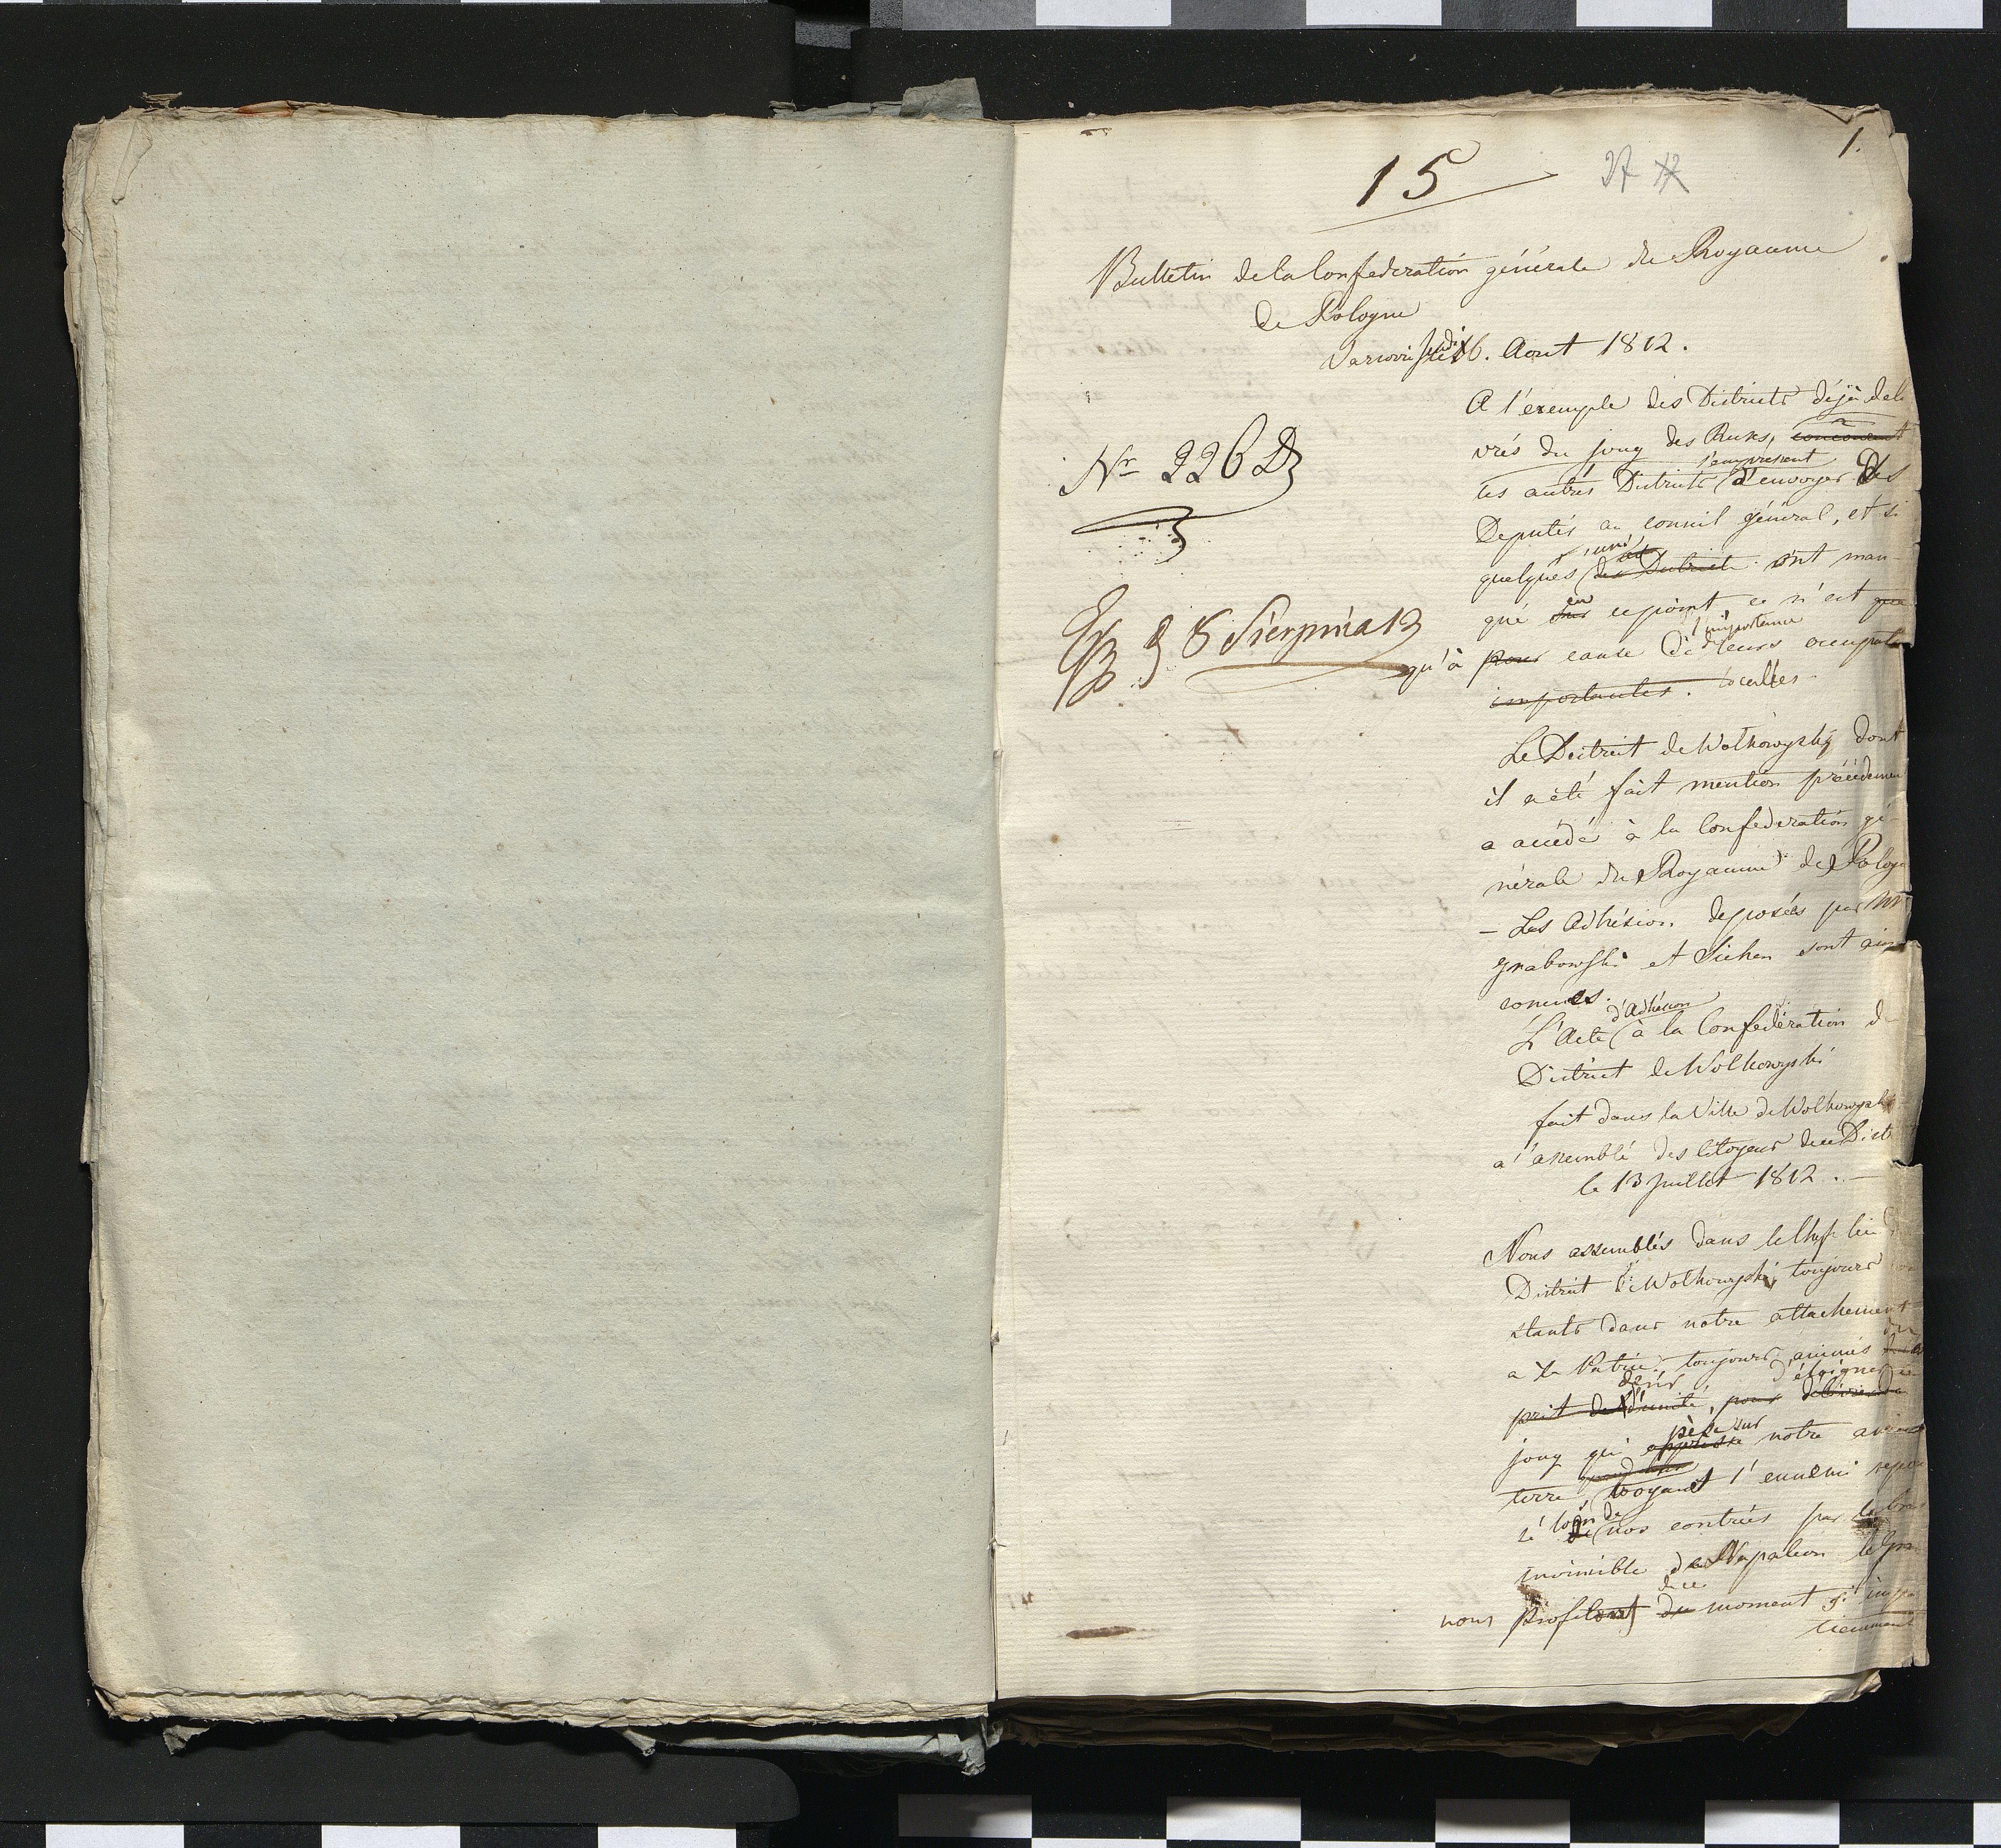 1.
15
27 12
Bulletin de la Confederation générale du Royaume
de Pologne
Varsovie Jeudi le 6. Aout 1812.
A l'exemple des Districts déjà deli
vrés du joug des Russ,
les autres Districts s'empressent d'envoyer des
Deputés au conseil général, et si
quelques uns ont man-
qué en ce point, ce n'est
qu'à cause de l'importance de leurs occupati
importantes. locales.
Le District de Wolkowysky dont
il a été fait mention précédemen
a accédé à la Confederation gé-
nérale du Royaume de Polog
- Les Adhésion deposées par Mr
Grabowski et Sichen sont ain
conues.
L'Acte d'Adhésion à la Confederation d
District de Wolkowyski
fait dans la Ville de Wolkowyski
a' assemblé des Citoyens de ce Dist
le 13 Juillet 1812. -
Nous assemblés dans le Chef lieu d
District de Wolkowyski, toujours con
stants dans notre attachement
a la Patrie, toujours animés du
prit de l'unité, pour désir d'éloigner ce
joug qui oppresse pèse sur notre
terre, voyant l'ennemi repou
sé loin de nos contrées par le bras
invincible de Napoleon le Gra
nous profitons de ce moment si impa
tiemment
Nr 226 D
Exp d 8 Sierpnia 12